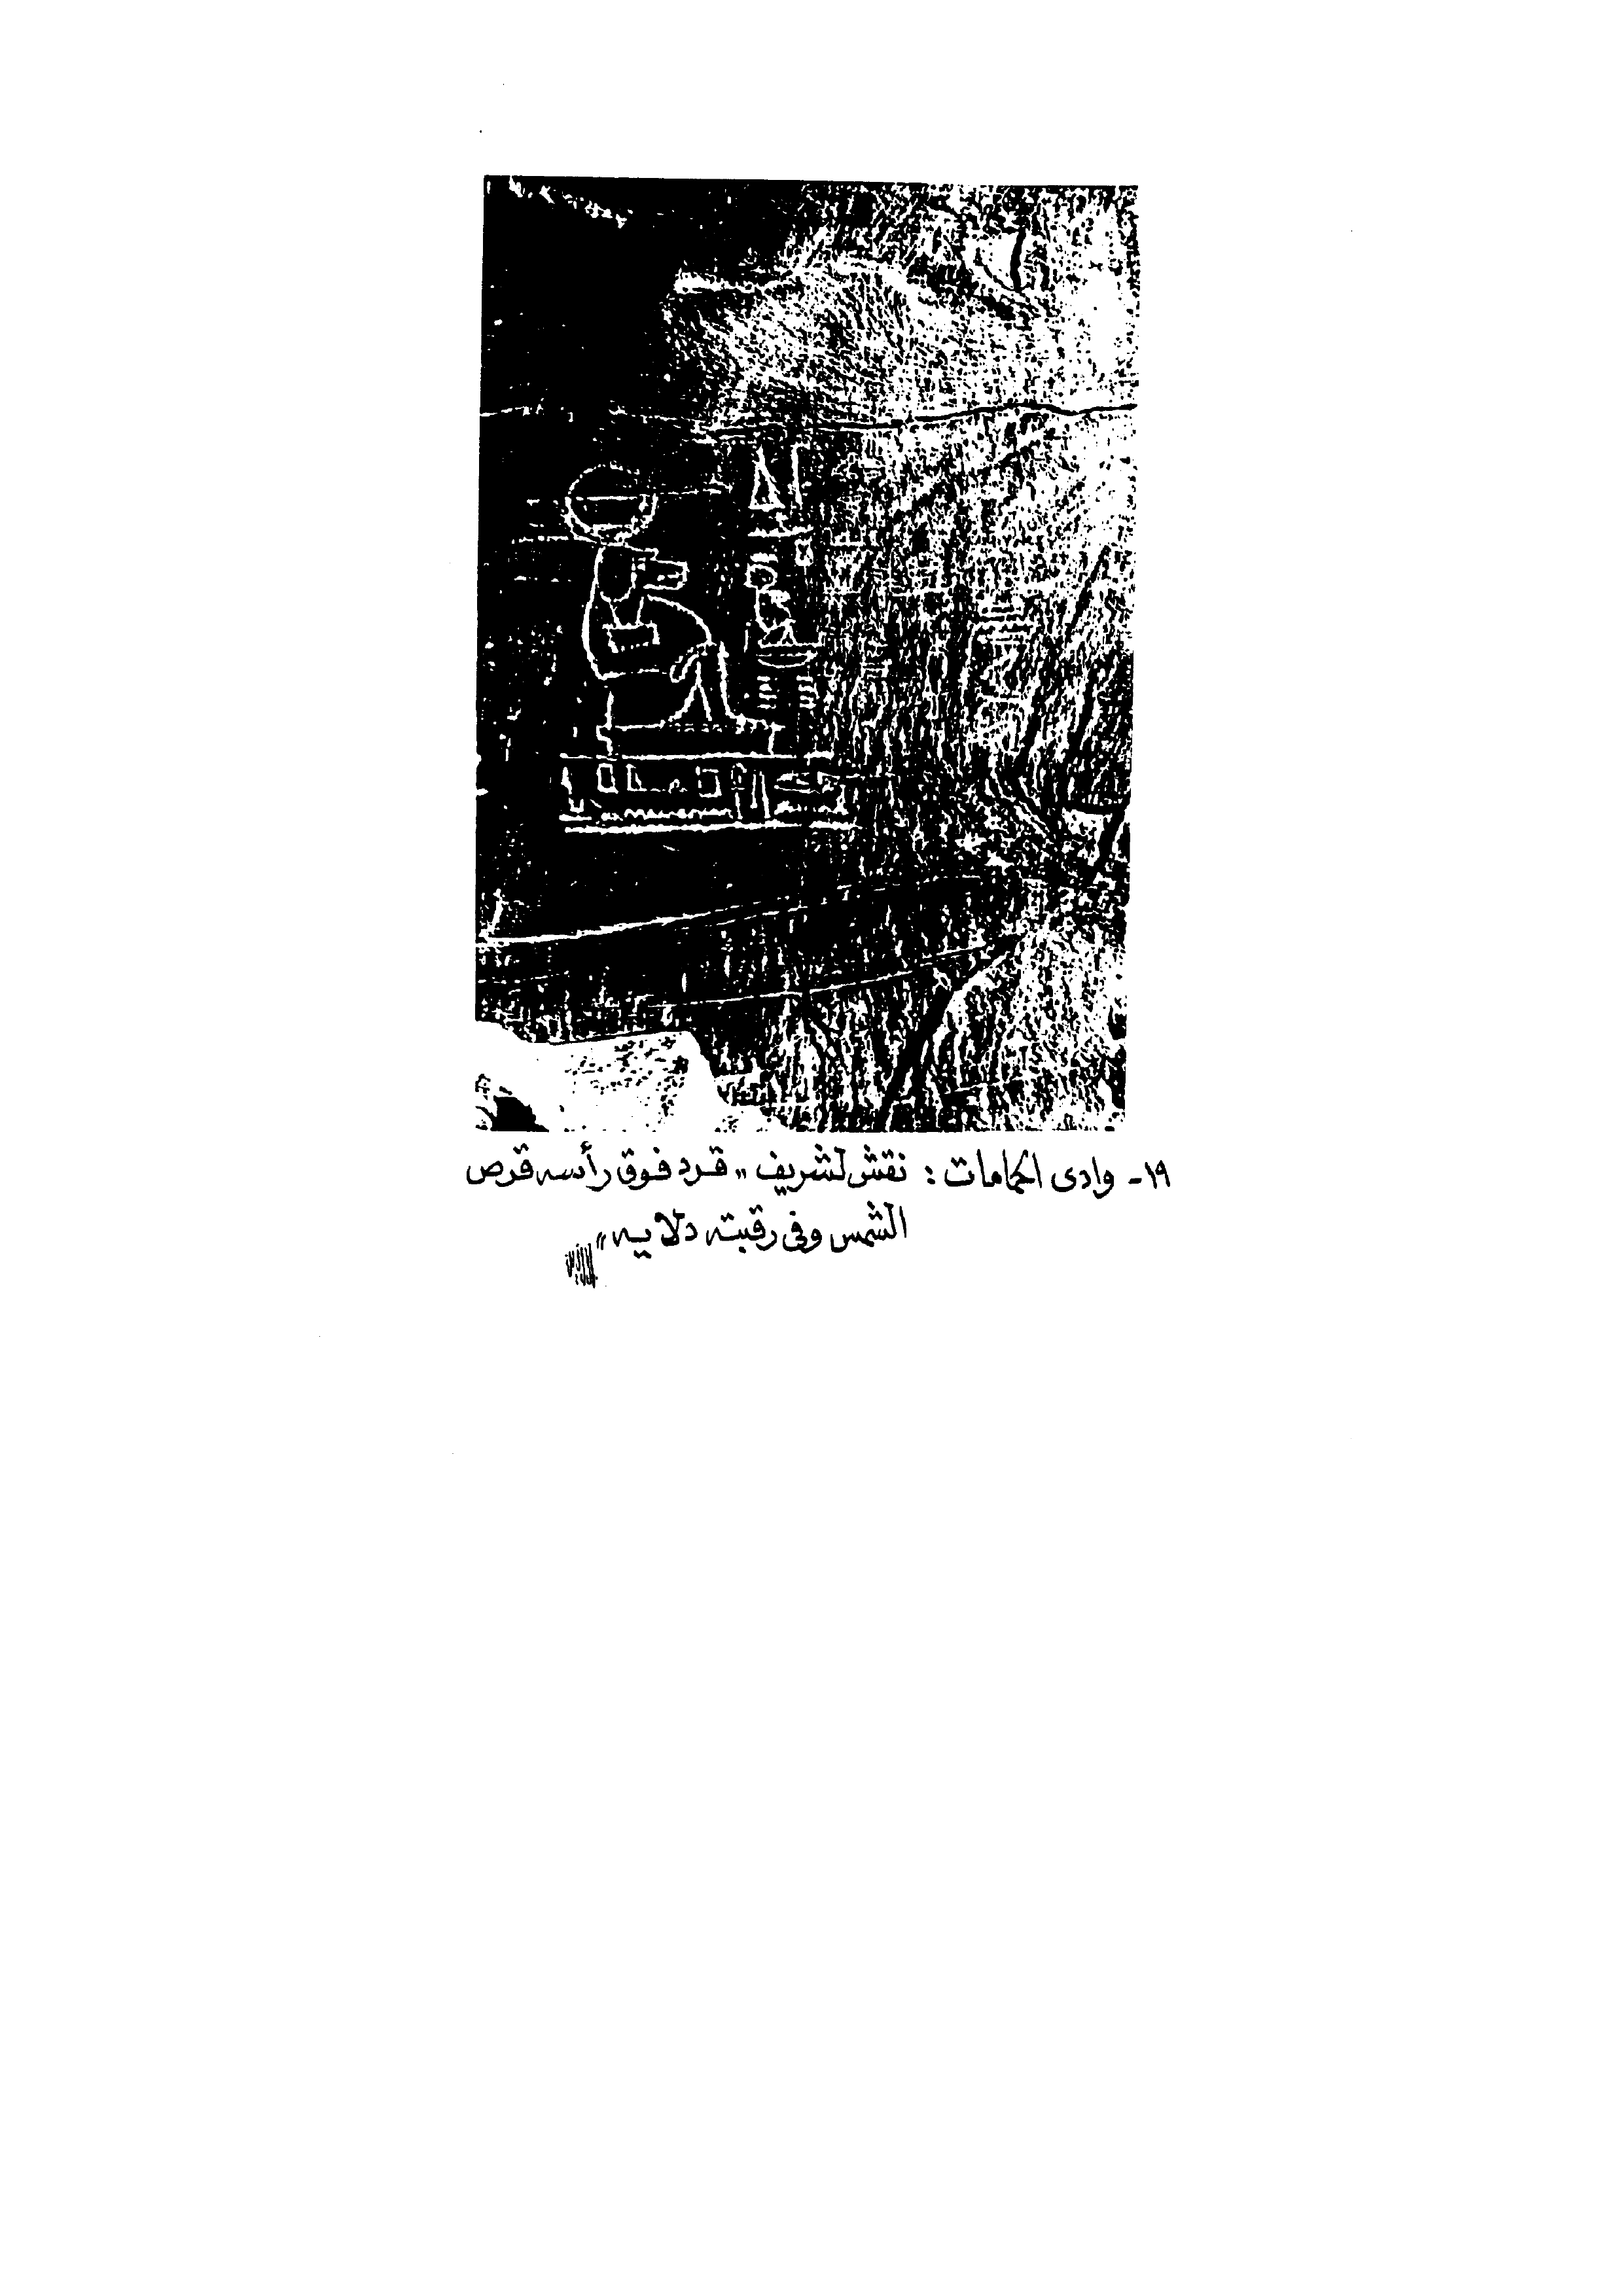 ١٩- وادى الحمامات : نقش لشريف "قرد فوق رأسه قرص
الشمس وفى رقبته دلايه"